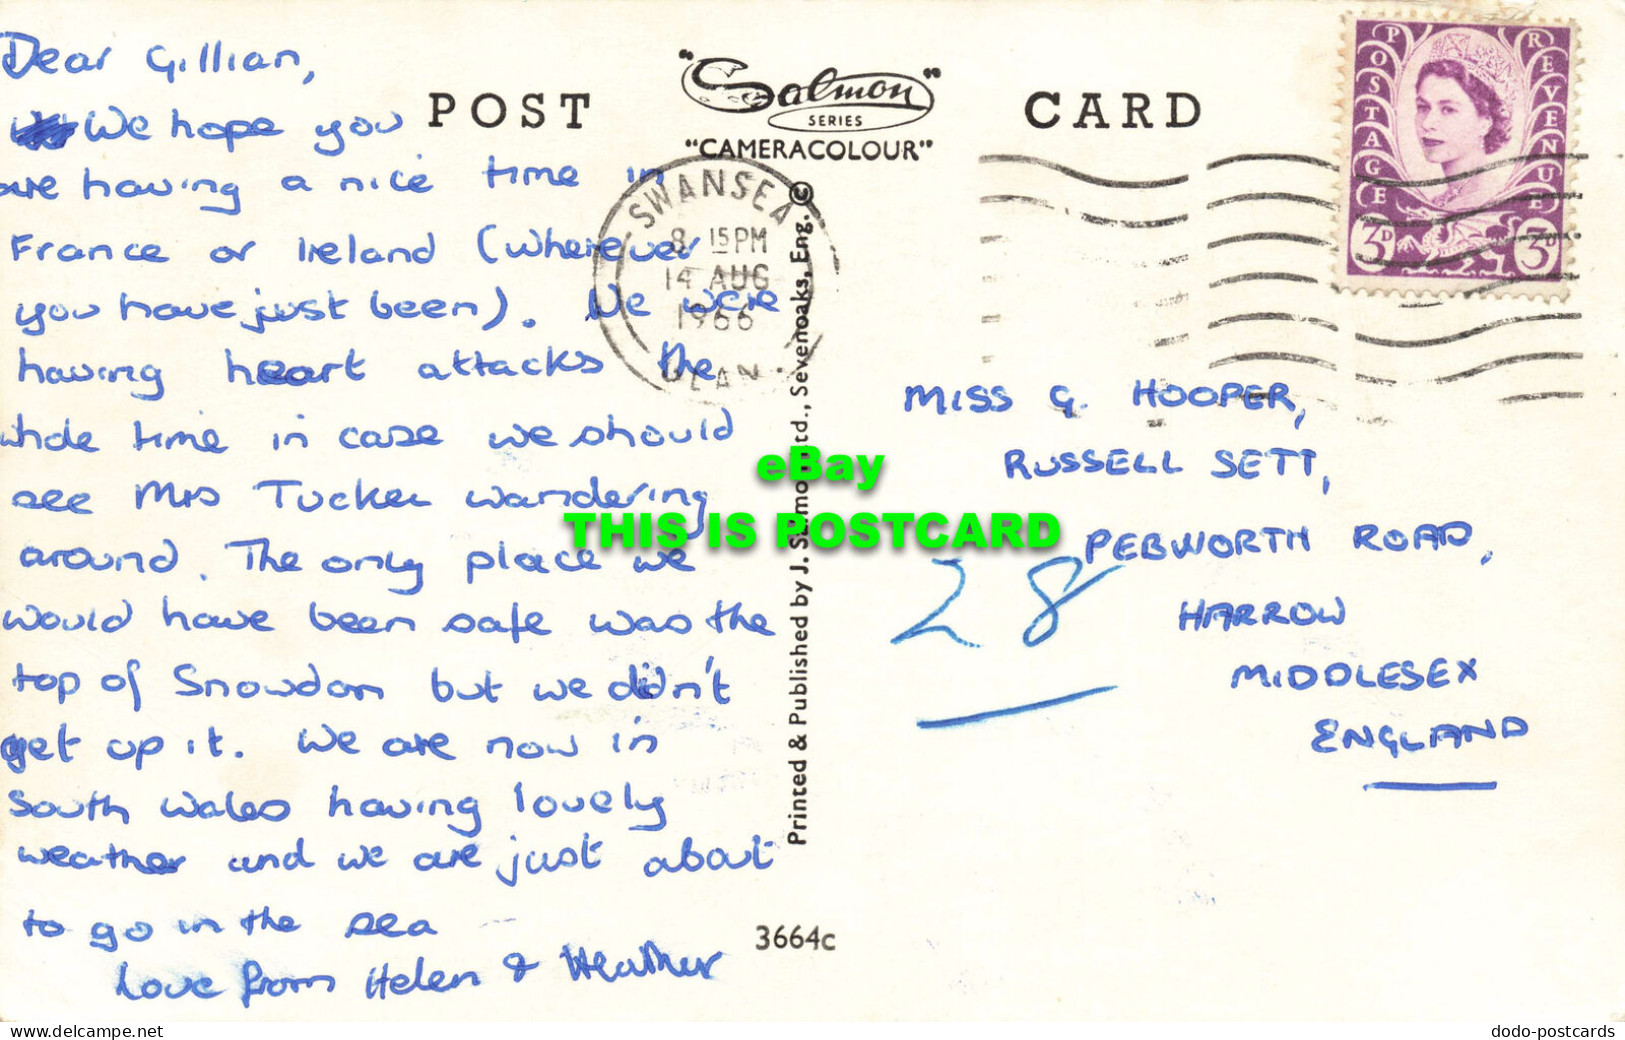 Dear Gillian,
We hope you
are having a nice time in
France or Ireland (Wherever
you have just been). We were
having heart attacks the
whole time in case we should
see Mrs Tucker wandering
around. The only place we
would have been safe was the
top of Snowdon but we didn't
get up it. We are now in
South Wales having lovely
weather and we are just about
to go in the sea
Love from Helen & Heather
POST CARD
"Salmon"
SERIES
"CAMERACOLOUR"
SWANSEA
8 15 PM
14 AUG
1966
POSTAGE REVENUE
3D 3D
MISS G. HOOPER,
RUSSELL SETT,
28 PEBWORTH ROAD,
HARROW
MIDDLESEX
ENGLAND
Printed & Published by J. Salmon Ltd., Sevenoaks, Eng. ©
3664c
eBay
THIS IS POSTCARD
www.delcampe.net
dodo-postcards